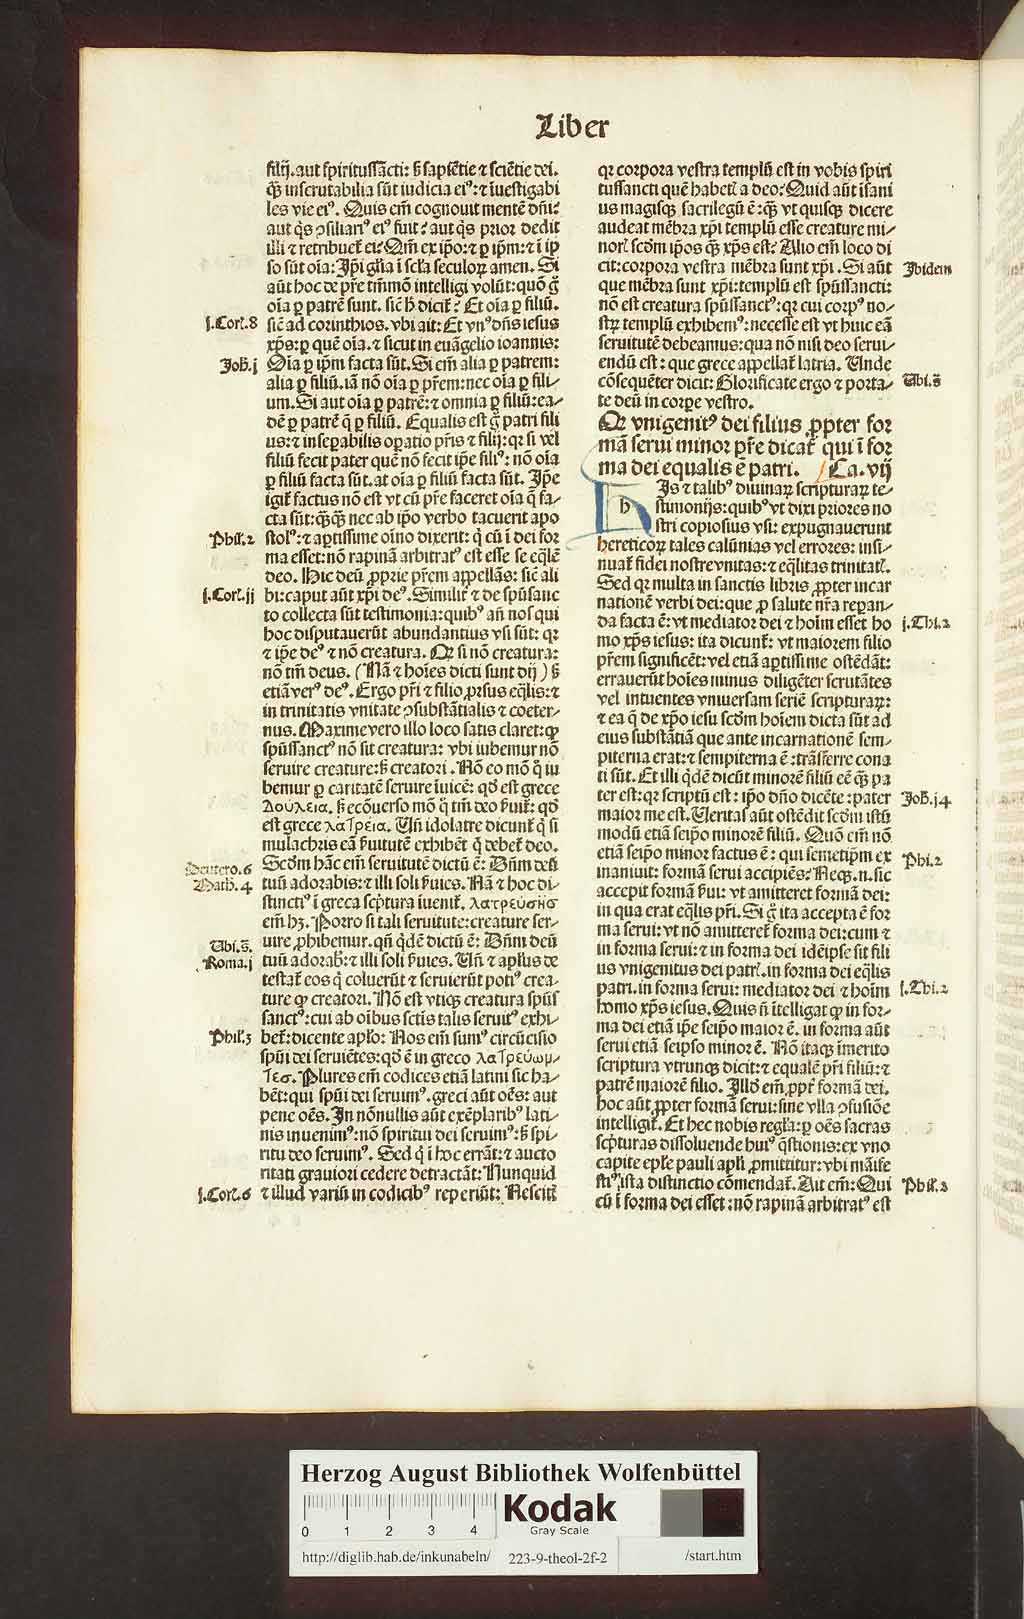 Liber
filij. aut spiritussācti: s̄ sapiētie ⁊ sciētie dei.
q̄ꝫ inscrutabilia sūt iudicia eiꝰ: ⁊ īuestigabi
les vie eiꝰ. Quis em̄ cognouit mentē dn̄i:
aut q̇s ꝯsiliariꝰ eiꝰ fuit? aut q̇s prior dedit
illi ⁊ retribueť ei? Qm̄ ex ip̄o: ⁊ ꝑ ip̄m: ⁊ ī ip̄
so sūt oīa: Jp̄i gl̄ia ī scl̄a seculoꝝ amen. Si
aūt hoc de pr̄e tm̄mō intelligi volūt: quō g̊
oīa ꝑ patrē sunt. sic h̄ dicit? Et oīa ꝑ filiū.
j.Corī.8 sic̄ ad corinthios. vbi ait: Et vnꝰ dn̄s iesus
xp̄s: ꝑ quē oīa. ⁊ sicut in euāgelio ioannis:
Joh̄.j Oīa ꝑ ip̄m facta sūt. Si em̄ alia ꝑ patrem:
alia ꝑ filiū. iā nō oīa ꝑ pr̄em: nec oīa ꝑ fili⸗
um. Si aut oīa ꝑ patrē: ⁊ omnia ꝑ filiū: ea⸗
dē ꝑ patrē q̄ ꝑ filiū. Equalis est g̊ patri fili
us: ⁊ inseꝑabilis oꝑatio pr̄is ⁊ filij: qꝛ si vel
filiū fecit pater quē nō fecit ip̄e filiꝰ: nō oīa
ꝑ filiū facta sūt. at oīa ꝑ filiū facta sūt. Jp̄e
igiť factus nō est vt cū pr̄e faceret oīa q̄ fa⸗
cta sūt: q̄ꝙ̄ꝫ nec ab ip̄o verbo tacuerit apo
Phil̄.2 stolꝰ: ⁊ aꝑtissime oīno dixerit: q̇ cū ī dei for
ma esset: nō rapinā arbitratꝰ est esse se eq̄lē
deo. Hic deū ꝓprie pr̄em appellās: sic ali
j.Corī.ij bi: caput aūt xp̄i deꝰ. Similiť ⁊ de spūsanc
to collecta sūt testimonia: quibꝰ an̄ nos qui
hoc disputauerūt abundantius vsi sūt: qꝛ
⁊ ip̄e deꝰ ⁊ nō creatura. Qꝛ si nō creatura:
nō tm̄ deus. (Nā ⁊ hoīes dicti sunt dij) s̄
etiā verꝰ deꝰ. Ergo pr̄i ⁊ filio ꝓrsus eq̄lis: ⁊
in trinitatis vnitate ꝯsubstātialis ⁊ coeter⸗
nus. Maxime vero illo loco satis claret: ꝙ
spūssanctꝰ nō sit creatura: vbi iubemur nō
seruire creature: s̄ creatori. Nō eo mō q̇ iu
bemur ꝑ caritatē seruire īuicē: qd̄ est grece
Δουλεια. s̄ ecōuerso mō q̇ tm̄ deo ſuiť: qd̄
est grece λατρεια. Un̄ idolatre dicunť q̇ si
mulachris eā ſuitutē exhibēt q̄ debeť deo.
Deutero.6 Scdm̄ hāc em̄ seruitutē dictū ē: Dn̄m deū
Math̄.4 tuū adorabis: ⁊ illi soli ſuies. Nā ⁊ hoc di⸗
stinctiꝰ ī greca scp̄tura īueniť. λατρευσης
em̄ hꝫ. Porro si tali seruitute: creature ser⸗
Ubi.s̄. uire ꝓhibemur. qn̄ q̇dē dictū ē: Dn̄m deū
Roma.j tuū adorab̄: ⁊ illi soli ſuies. Un̄ ⁊ apl̄us de
testať eos q̇ coluerūt ⁊ seruierūt potiꝰ crea⸗
ture ꝙ creatori. Nō est vtiqꝫ creatura spūs
sanctꝰ: cui ab oībus scīs talis seruitꝰ exhi⸗
Phil̄.3 beť: dicente apl̄o: Nos em̄ sumꝰ circūcisio
spūi dei seruiētes: qd̄ ē in greco λατρευωμ⸗
τες. Plures em̄ codices etiā latini sic ha⸗
bēt: qui spūi dei seruimꝰ. greci aūt oēs: aut
pene oēs. Jn nōnullis aūt exēplaribꝰ lati⸗
nis inuenimꝰ: nō spiritui dei seruimꝰ: s̄ spi⸗
ritu deo seruimꝰ. Sed q̇ ī hoc errāt: ⁊ aucto
ritati grauiori cedere detractāt: Nunquid
j.Corī.6 ⁊ illud variū in codicibꝰ reperiūt: Nescitꝭ
qꝛ corpora vestra templū est in vobis spiri
tussancti quē habetꝭ a deo: Quid aūt īsani
us magisqꝫ sacrilegū ē: q̄ꝫ vt quisqꝫ dicere
audeat mēbra xp̄i templū esse creature mi⸗
norꝭ scdm̄ ip̄os q̄ꝫ xp̄s est? Alio em̄ loco di
Jbidem cit: corpora vestra mēbra sunt xp̄i. Si aūt
que mēbra sunt xp̄i: templū est spūssancti:
nō est creatura spūssanctꝰ: qꝛ cui corpꝰ no⸗
stꝝ templū exhibemꝰ: necesse est vt huic eā
seruitutē debeamus: qua nō nisi deo serui⸗
endū est: que grece appellať latria. Unde
Ubi.s̄ cōsequēter dicit: Glorificate ergo ⁊ porta⸗
te deū in corꝑe vestro.
Qꝛ vnigenitꝰ dei filius ꝓpter for
mā serui minor pr̄e dicať qui ī for
ma dei equalis ē patri. Ca. vij
h Js ⁊ talibꝰ diuinaꝝ scripturaꝝ te⸗
stimonijs: quibꝰ vt dixi priores no
stri copiosius vsi: expugnauerunt
hereticoꝝ tales calūnias vel errores: insi⸗
nuať fidei nostre vnitas: ⁊ eq̄litas trinitatꝭ.
Sed qꝛ multa in sanctis libris ꝓpter incar
nationē verbi dei: que ꝓ salute nr̄a reꝑan⸗
j.Thi.2 da facta ē: vt mediator dei ⁊ hoīm esset ho
mo xp̄s iesus: ita dicunť: vt maiorem filio
pr̄em significēt: vel etiā aꝑtissime ostēdāt:
errauerūt hoīes minus diligēter scrutātes
vel intuentes vniuersam seriē scripturaꝝ:
⁊ ea q̄ de xp̄o iesu scdm̄ hoīem dicta sūt ad
eius substātiā que ante incarnationē sem⸗
piterna erat: ⁊ sempiterna ē: trāsferre cona
ti sūt. Et illi q̇dē dicūt minorē filiū eē q̄ꝫ pa
Joh̄.j4 ter est: qꝛ scriptū est: ip̄o dn̄o dicēte: pater
maior me est. Ueritas aūt ostēdit scdm̄ istū
modū etiā seip̄o minorē filiū. Quō em̄ nō
Phi.2 etiā seip̄o minor factus ē: qui semetip̄m ex
inaniuit: formā serui accipiēs? Neqꝫ .n. sic
accepit formā ſui: vt amitteret formā dei:
in qua erat eq̄lis pr̄i. Si g̊ ita accepta ē for
ma serui: vt nō amitteret forma dei: cum ⁊
in forma serui: ⁊ in forma dei idē ipse sit fili
us vnigenitus dei patrꝭ. in forma dei eq̄lis
j.Thi.2 patri. in forma serui: mediator dei ⁊ hoīm
homo xp̄s iesus. Quis n̄ ītelligat ꝙ in for⸗
ma dei etiā ip̄e seip̄o maior ē. in forma aūt
serui etiā seipso minor ē. Nō itaqꝫ īmerito
scriptura vtrunqꝫ dicit: ⁊ equalē pr̄i filiū: ⁊
patrē maiorē filio. Jllď em̄ ꝓpť formā dei.
hoc aūt ꝓpter formā serui: sine vlla ꝯfusiōe
intelligiť. Et hec nobis regl̄a: ꝑ oēs sacras
scp̄turas dissoluende huiꝰ q̄stionis: ex vno
capite epl̄e pauli apl̄i ꝓmittitur: vbi māife
stiꝰ ista distinctio cōmendať. Ait em̄: Qui
Phil̄.2 cū ī forma dei esset: nō rapinā arbitratꝰ est
Herzog August Bibliothek Wolfenbüttel
0 1 2 3 4
Kodak
Gray Scale
http://diglib.hab.de/inkunabeln/ 223-9-theol-2f-2 /start.htm